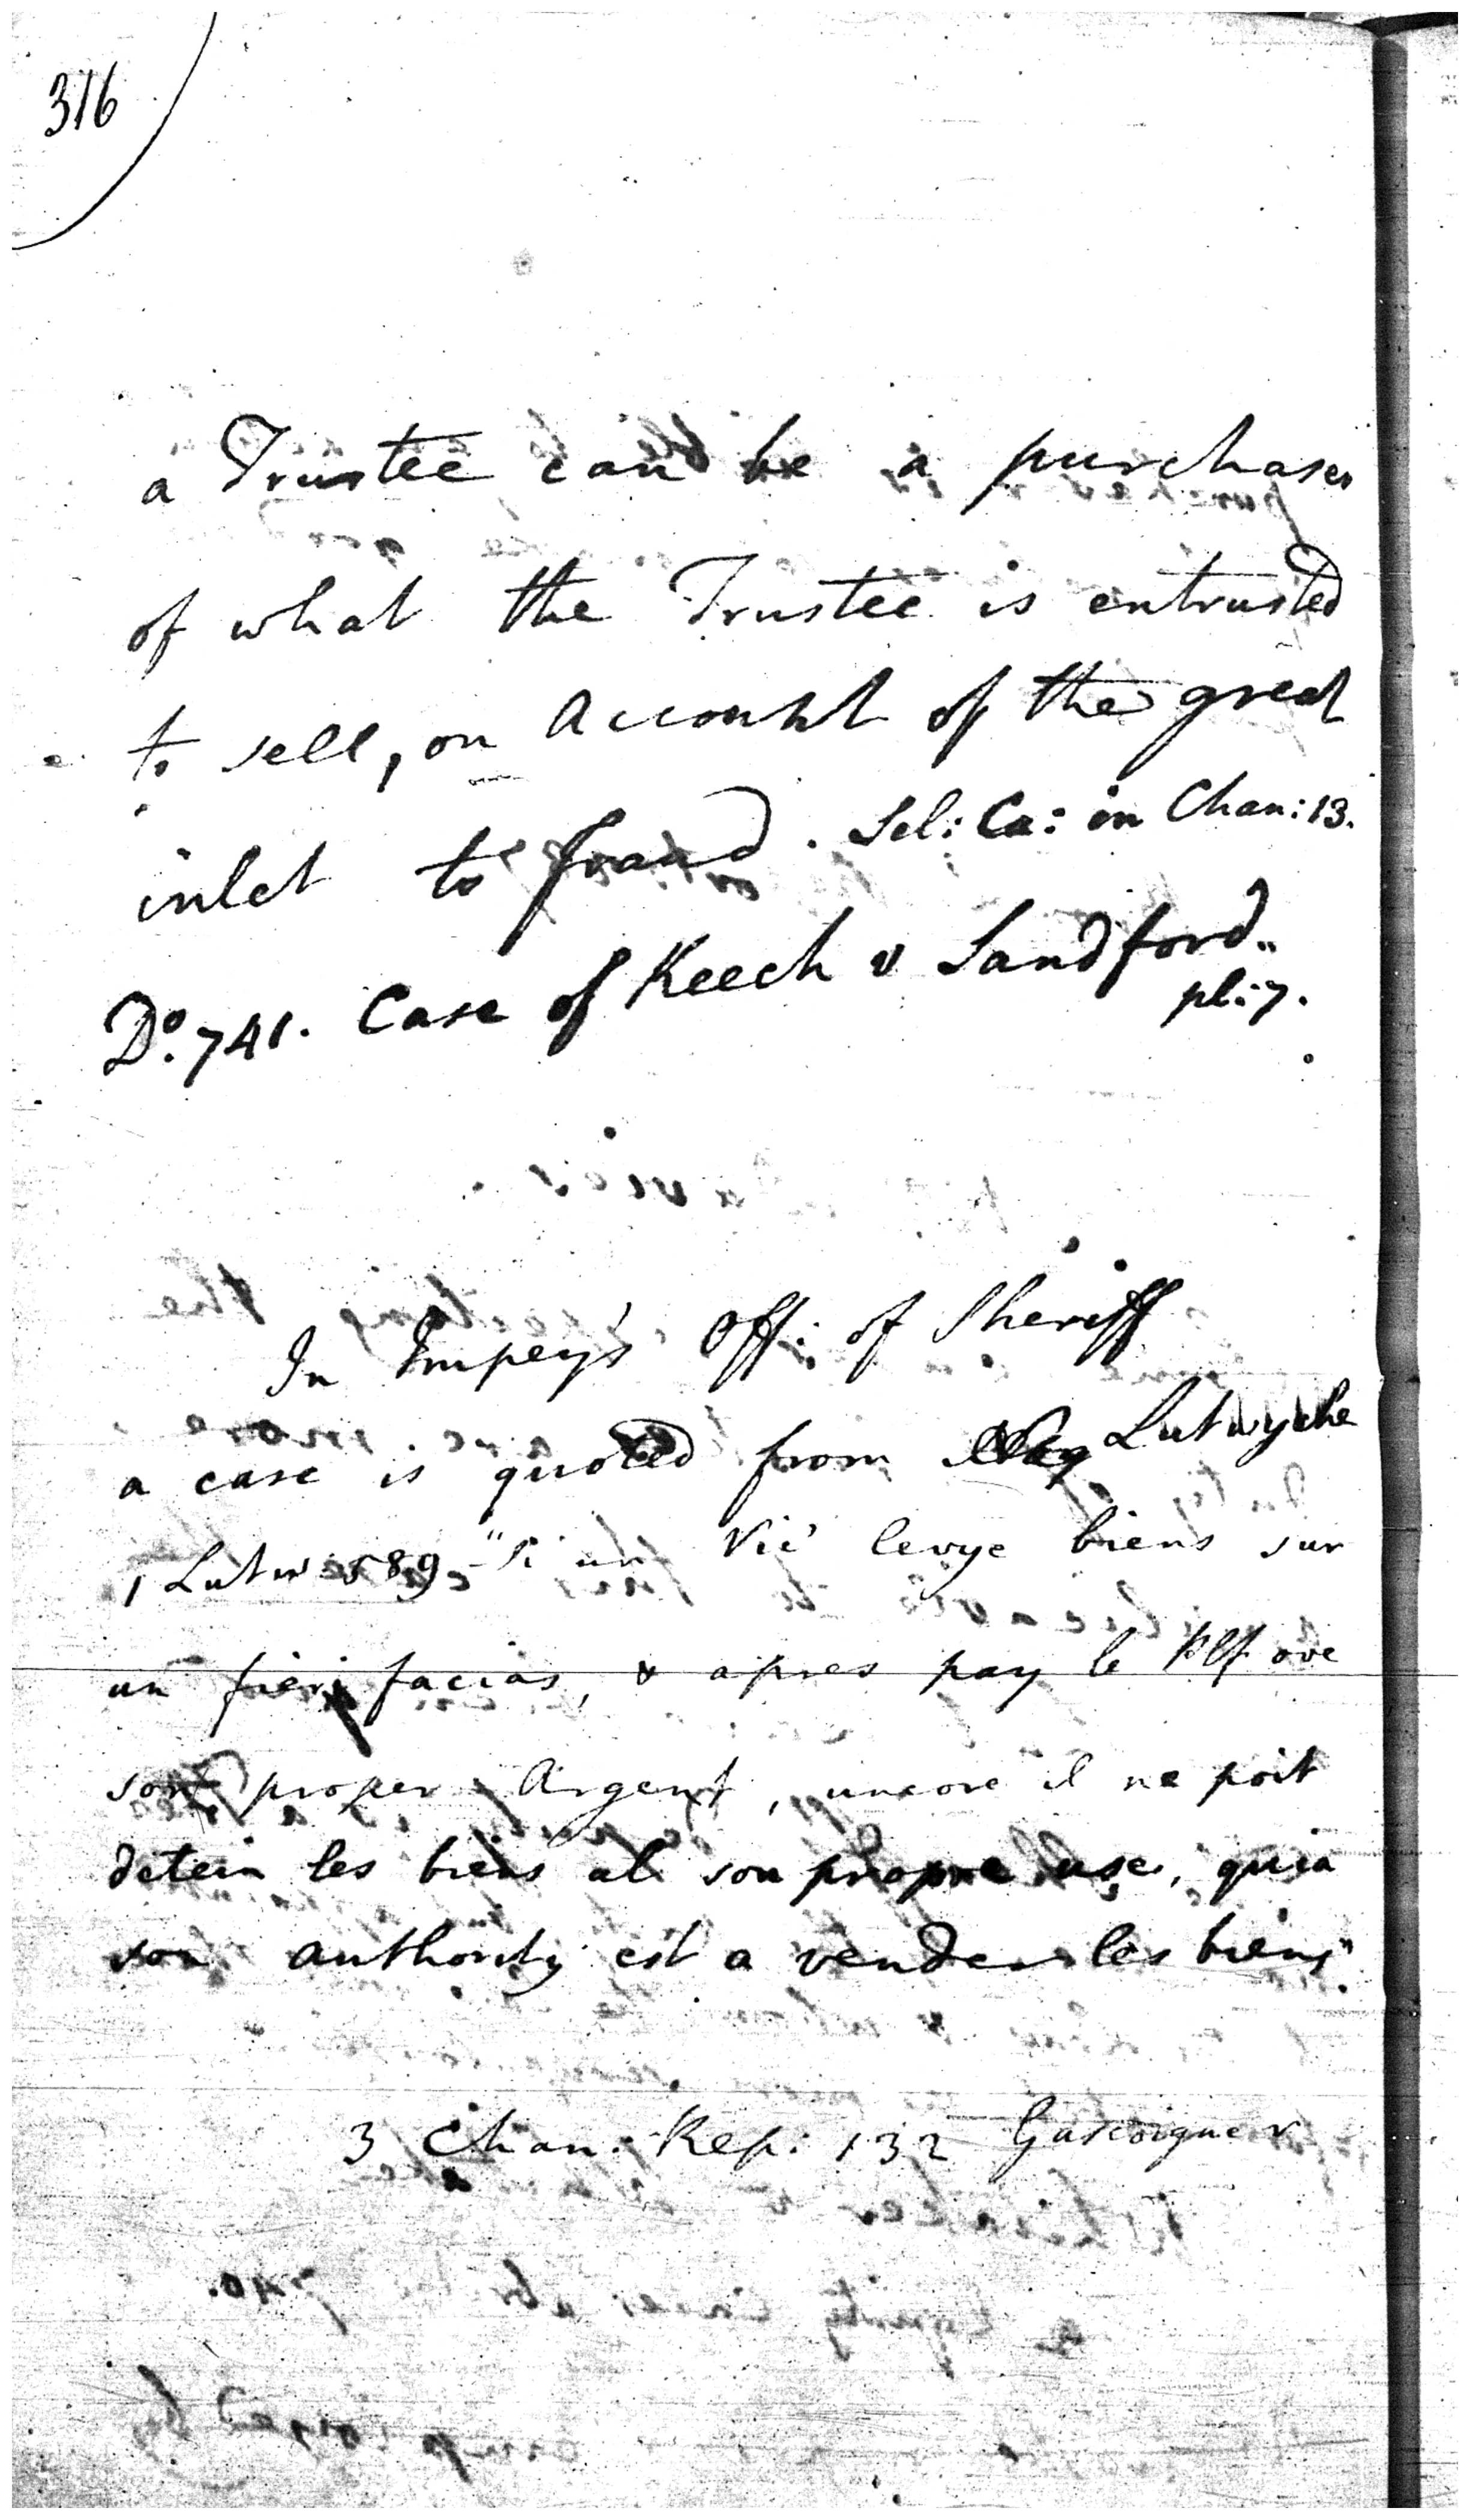 316
a Trustee can be a purchaser
of what the Trustee is entrusted
to sell, on Account of the great
inlet to fraud. Sel: Ca: in Chan: 13.
Do. 741. Case of Keech v Sandford..
pl: 7.
In Impey's Off: of Sheriff
a case is quoted from Lutwyche
1 Lutw: 589 - "Si un Vic' levye biens sur
un fieri facias, & apres pay le Plf ove
son proper Argent, uncore il ne poit
detein les biens al son propre use, quia
son authority est a vender les biens".
3 Chan: Rep: 132 Gascoigne v